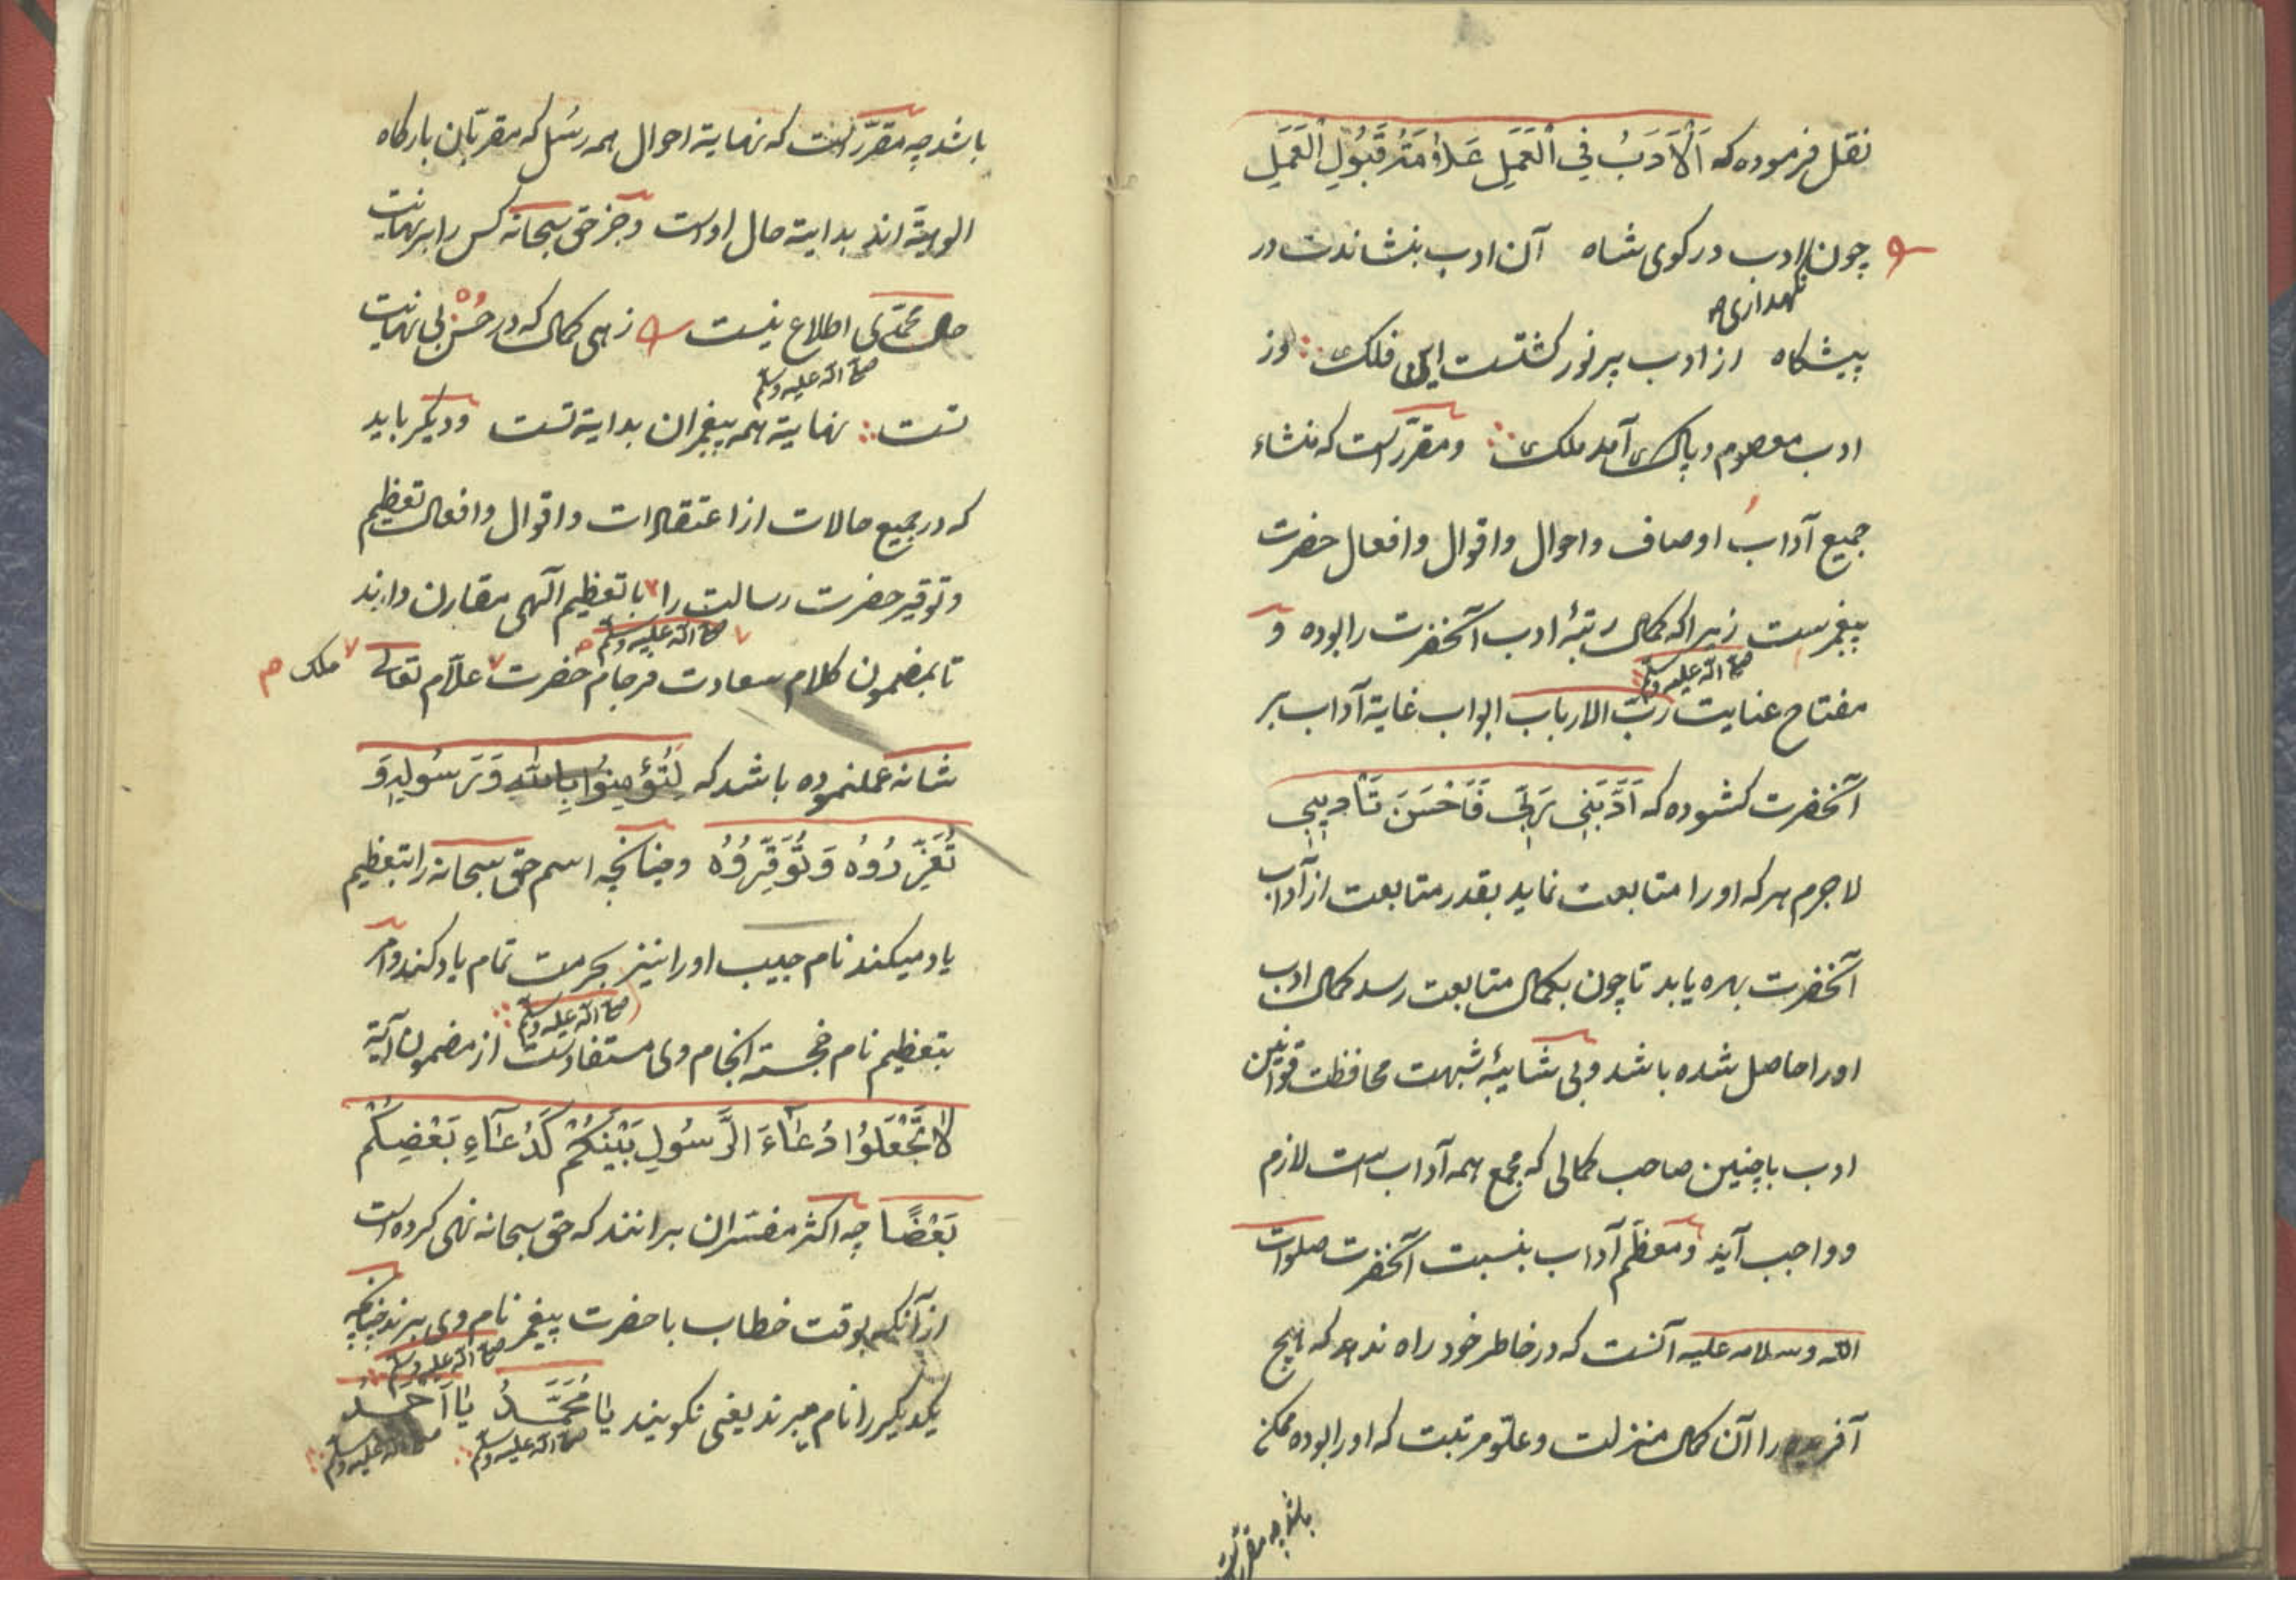 نقل فرموده که اَلْاَدَبُ فِي الْعَمَلِ عَلَامَةُ قَبُولِ الْعَمَلِ
چون ادب در کوی شاه آن ادب بنشاندت در
نگهداری
پیشگاه از ادب پر نور گشتست این فلک وز
ادب معصوم و پاک آمد ملک ومقررست که منشاء
جمیع آداب اوصاف واحوال واقوال وافعال حضرت
پیغمبرست زیرا که کمال رتبهٔ ادب آنحضرت را بوده و
صلی الله علیه وسلم
مفتاح عنایت ربّ الارباب ابواب غایة آداب بر
آنحضرت کشوده که اَدَّبَنِي رَبِّي فَاَحْسَنَ تَأْدِيبِي
لاجرم هر که او را متابعت نماید بقدر متابعت از آداب
آنحضرت بهره یابد تا چون بکمال متابعت رسد کمال ادب
او را حاصل شده باشد و بی شایبهٔ شبهت محافظت قوانین
ادب با چنین صاحب کمالی که مجمع همه آداب است لازم
و واجب آید ومعظم آداب بنسبت آنحضرت صلوات
الله وسلامه علیه آنست که در خاطر خود راه ندهد که هیچ
آفریده را آن کمال منزلت وعلوّ مرتبت که او را بوده ممکن
باشد چه مقررست
باشد چه مقرّر است که نهایة احوال همه رُسُل که مقربان بارکاه
الوهیّة اند بدایة حال اوست و جز حق سبحانه کس را بر نهایت
حال محمّدی اطلاع نیست زهی کمال که در حُسْن بی نهایت
صلی الله علیه وسلم
تست نهایة همه پیغمبران بدایة تست ودیکر باید
که در جمیع حالات از اعتقادات واقوال وافعال تعظیم
وتوقیر حضرت رسالت را با تعظیم آلهی مقارن دارند
صلی الله علیه وسلم
تا بمضمون کلام سعادت فرجام حضرت علّام تعالی ملک
شانه عملنموده باشد که لِتُؤْمِنُوا بِاللّٰهِ وَرَسُولِهِ وَ
تُعَزِّرُوهُ وَتُوَقِّرُوهُ وچنانچه اسم حق سبحانه را بتعظیم
یاد میکند نام حبیب او را نیز بحرمت تمام یاد کند وامر
صلی الله علیه وسلم
بتعظیم نام خجسته انجام وی مستفادست از مضمون آیة
لَا تَجْعَلُوا دُعَآءَ الرَّسُولِ بَيْنَكُمْ كَدُعَآءِ بَعْضِكُمْ
بَعْضًا چه اکثر مفسّران برانند که حق سبحانه نهی کرده است
از آنکه بوقت خطاب با حضرت پیغمبر نام وی برند چنانکه
صلی الله علیه وسلم
یکدیگر را نام میبرند یعنی نکویند یَا مُحَمَّدُ یَا اَحْمَدُ
صلی الله علیه وسلم صلی الله علیه وسلم